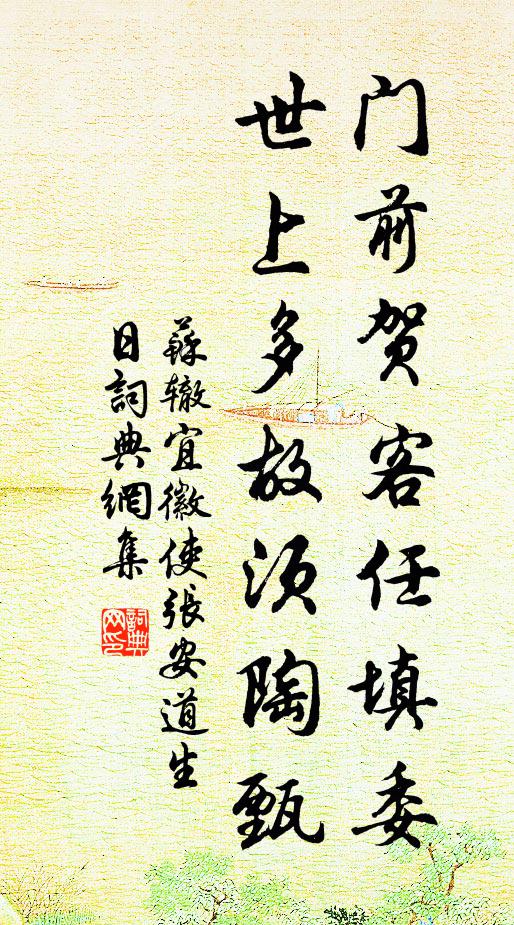 门前贺客任填委
世上多故须陶甄
蘇辙宜徽使張安道生
日詞典網集
詞典
网印